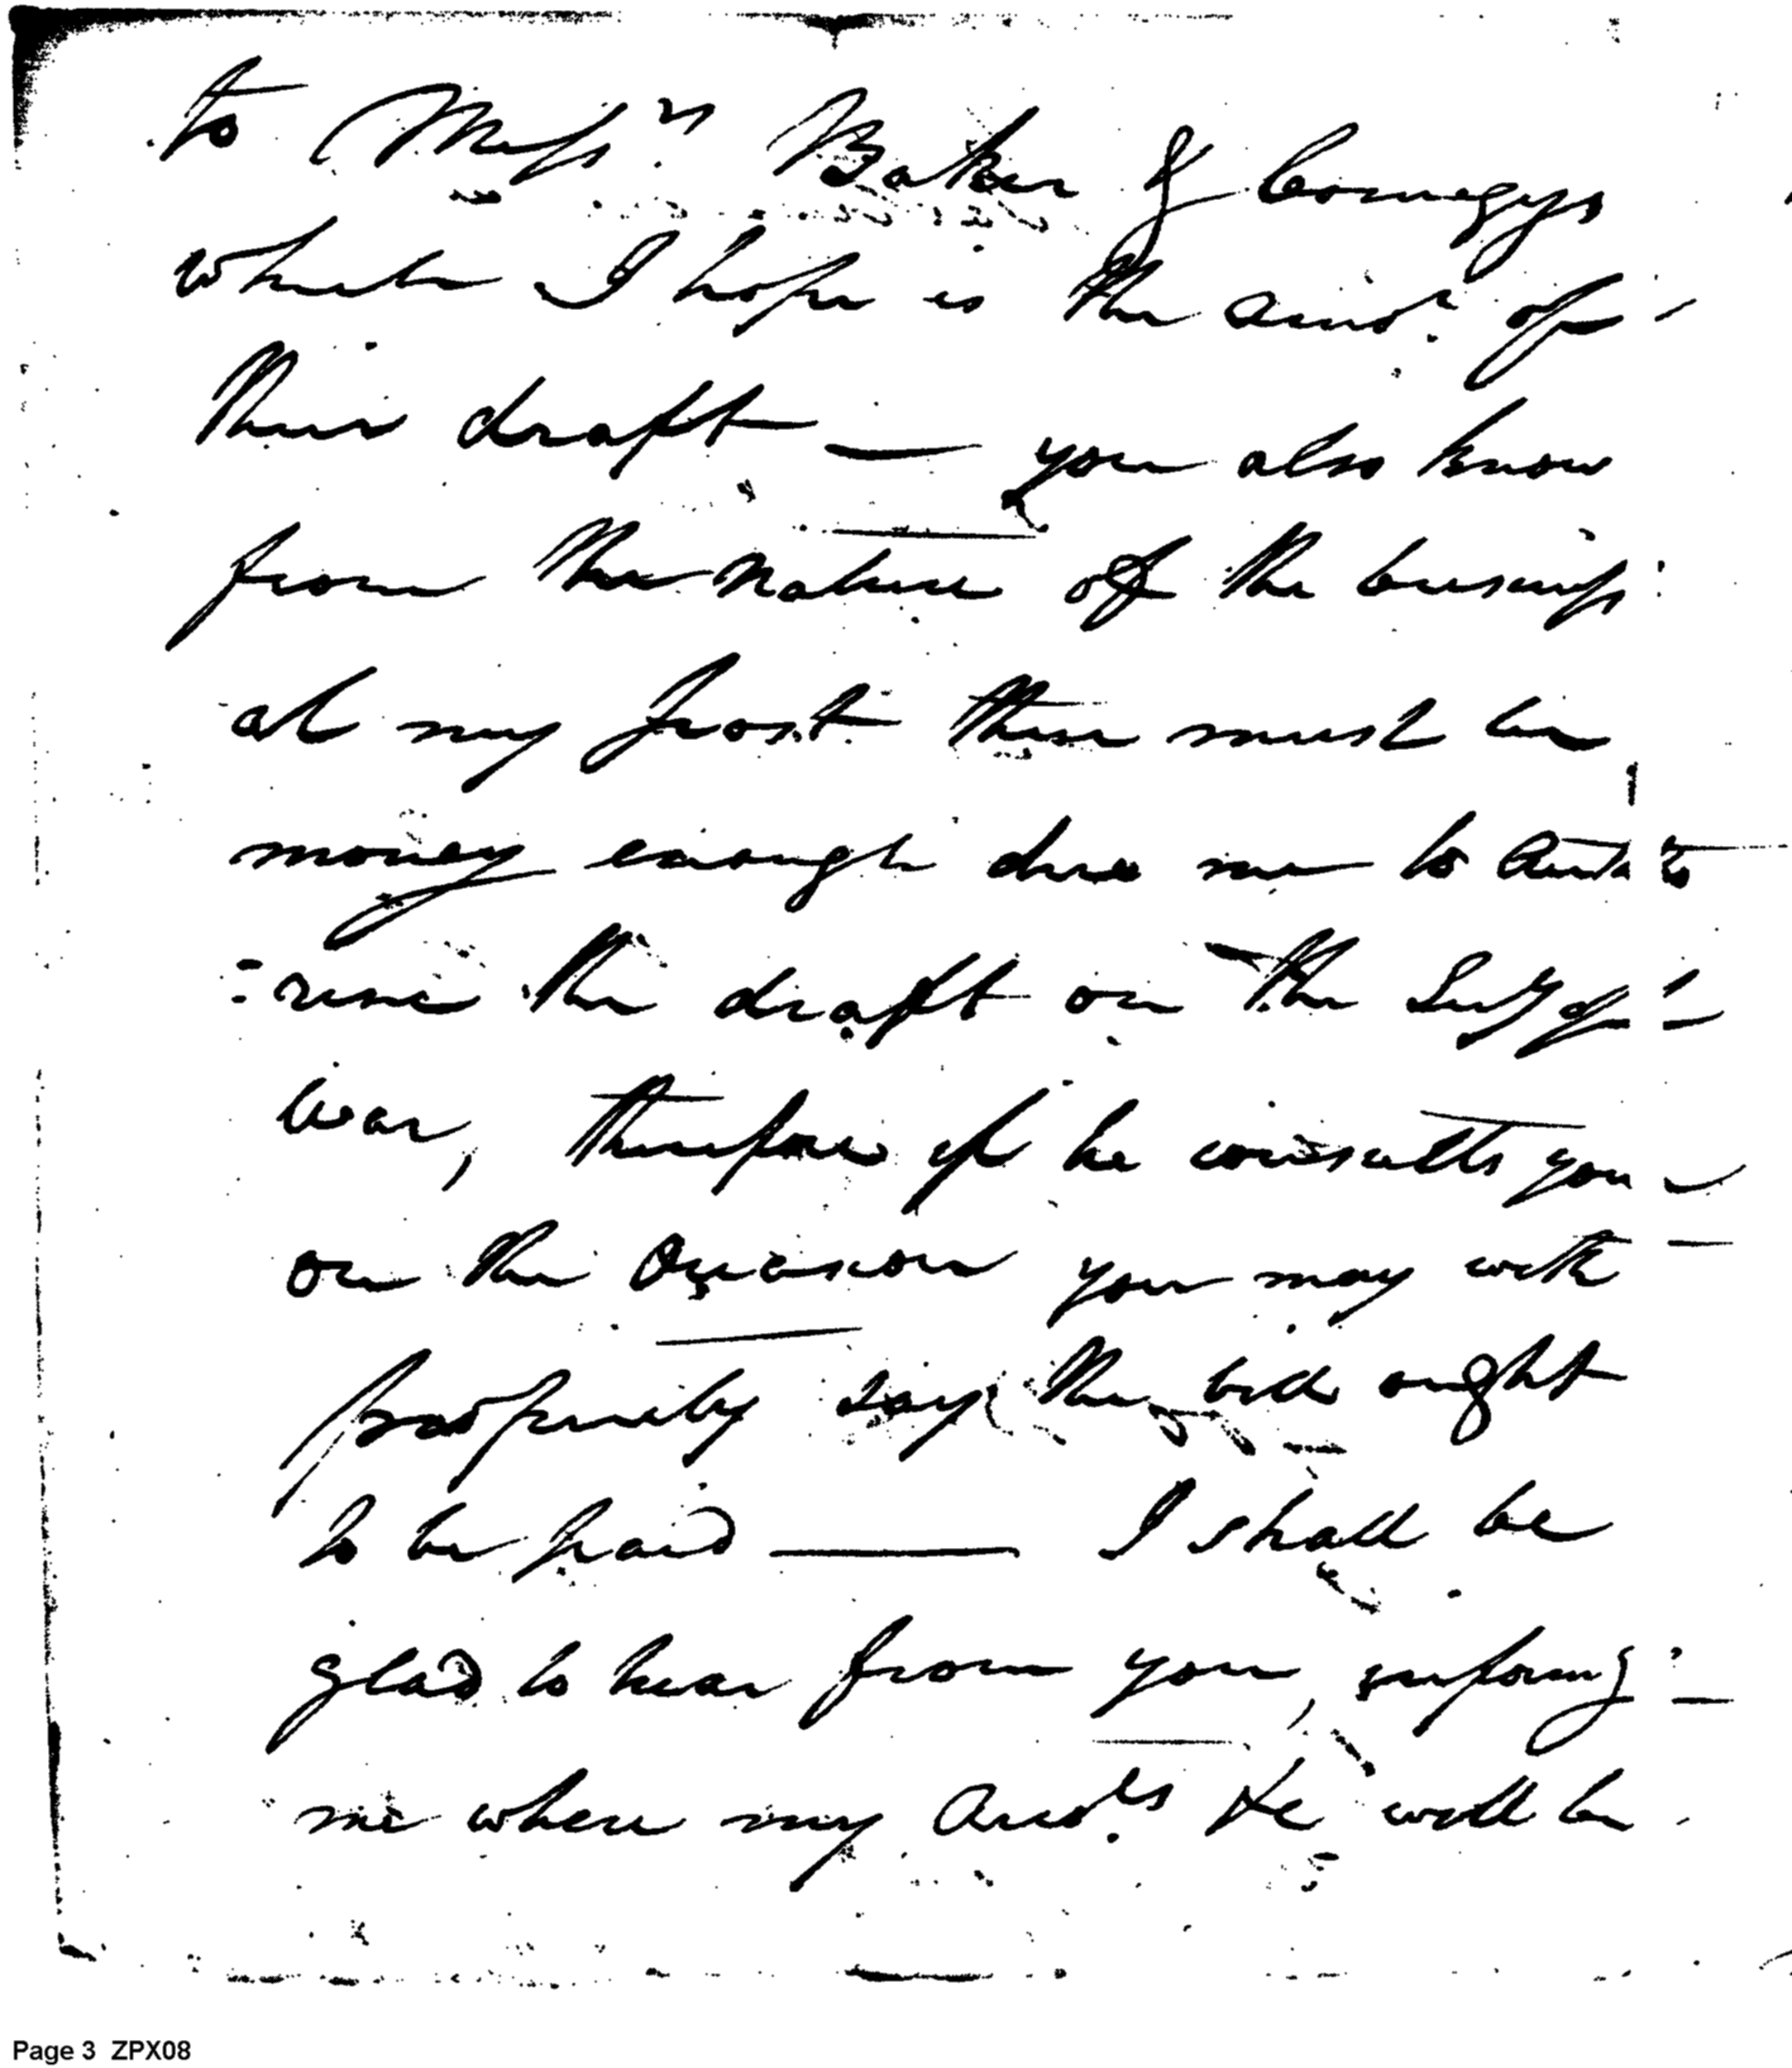 to Mess.rs Baker & Comegys
which I hope is the amt. of
their draft — you also know
from the nature of the business
at my post there must be
money enough due me to autho
=rise the draft on the Secy of
War, therefore if he consults you
on the occasion you may with
propriety say the bill ought
to be paid — I shall be
glad to hear from you, informg
me when my accts. &c will be
Page 3 ZPX08